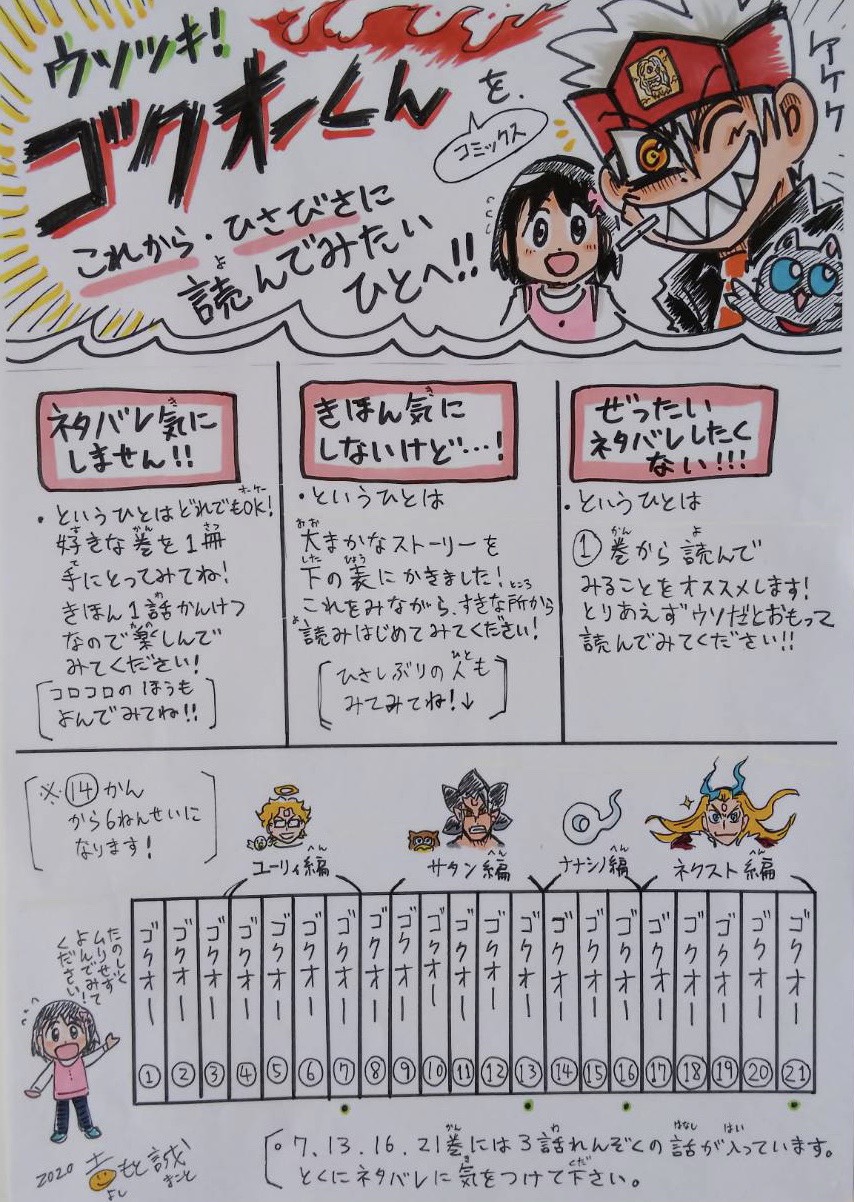 ウソツキ!
ゴクオーくん
を、
コミックス
ケケケ
これから・ひさびさに
読んでみたい
ひとへ!!
ネタバレ気に
しません!!
・というひとはどれでもOK!
好きな巻を1冊
手にとってみてね!
きほん1話かんけつ
なので楽しんで
みてください!
コロコロのほうも
よんでみてね!!
きほん気に
しないけど…!
・というひとは
大まかなストーリーを
下の表にかきました!
これをみながら、すきな所から
読みはじめてみてください!
ひさしぶりの人も
みてみてね!↓
ぜったい
ネタバレしたく
ない!!!
・というひとは
①巻から読んで
みることをオススメします!
とりあえずウソだとおもって
読んでみてください!!
※⑭かん
から6ねんせいに
なります!
ユーリィ編
サタン編
ナナシノ編
ネクスト編
たのしく
ムリせず
よんでみて
ください!
ゴクオー ①
ゴクオー ②
ゴクオー ③
ゴクオー ④
ゴクオー ⑤
ゴクオー ⑥
ゴクオー ⑦
ゴクオー ⑧
ゴクオー ⑨
ゴクオー ⑩
ゴクオー ⑪
ゴクオー ⑫
ゴクオー ⑬
ゴクオー ⑭
ゴクオー ⑮
ゴクオー ⑯
ゴクオー ⑰
ゴクオー ⑱
ゴクオー ⑲
ゴクオー ⑳
ゴクオー ㉑
。7.13.16.21巻には3話れんぞくの話が入っています。
とくにネタバレに気をつけて下さい。
2020 吉もと誠
よし まこと